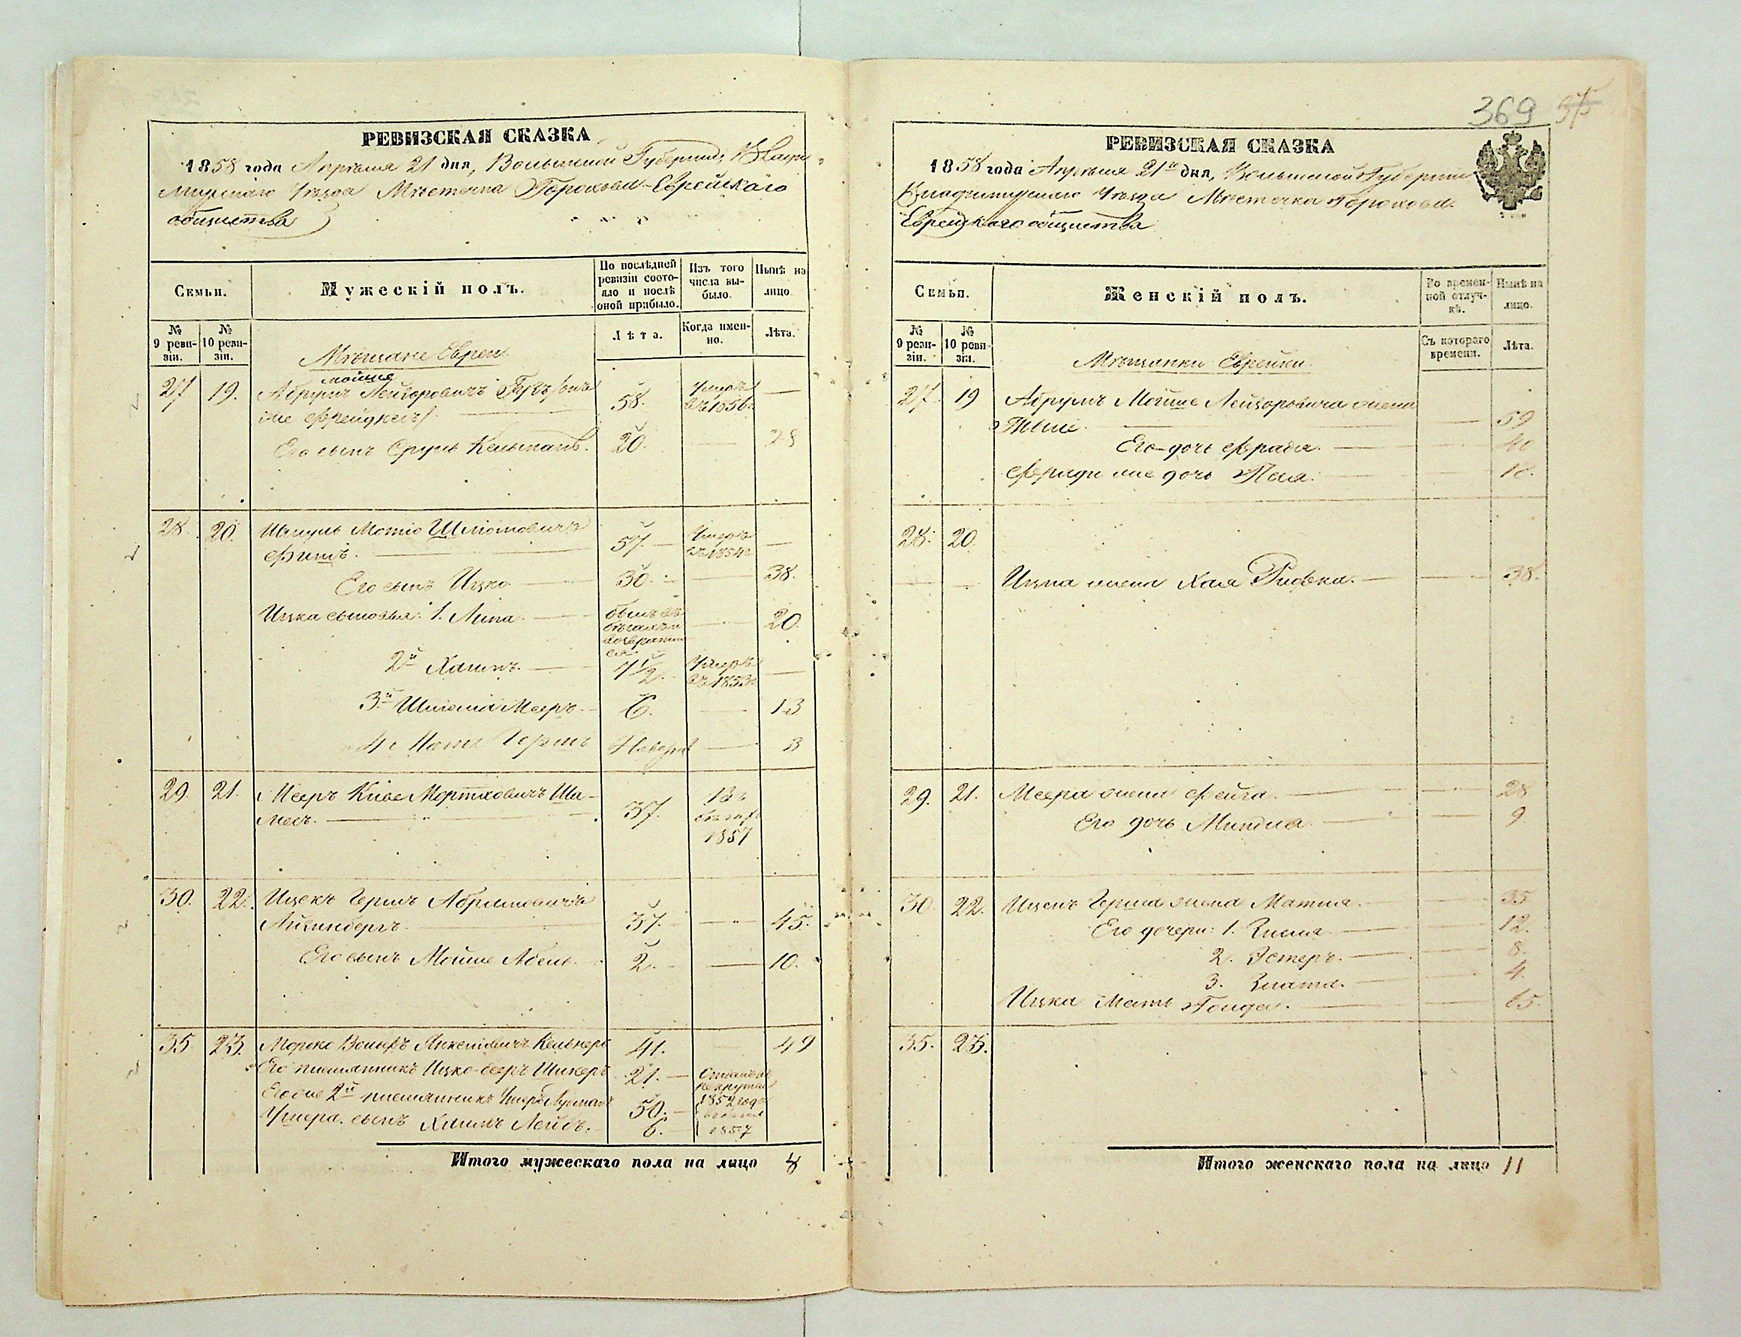 369
РЕВИЗСКАЯ СКАЗКА
1858 года Апрѣля 21 дня, Волынской Губерніи, Влади-
мирскаго Уѣзда Мѣстечка Горохова Еврейскаго
общества
Семьи.
Мужескій полъ.
По послѣдней ревизіи состояло и послѣ оной прибыло.
Изъ того числа выбыло.
Нынѣ на лицо
№ 9 ревизіи.
№ 10 ревизіи.
Лѣта.
Когда именно.
Лѣта.
Мѣщане Евреи
27 19. Абрумъ Мойше Лейзоровичъ 58. Умеръ въ 1856 —
Его сынъ Сруль Кельманъ. 20. — 28
28 20. Шмуль Мотіо Шліомовичъ
Фишъ. 57. — Умеръ въ 1854 —
Его сынъ Ицко 30. — 38.
Ицка сыновья: 1. Липа 20.
2й Хаимъ. 7 1/2 Умеръ въ 1853 —
3й Шліома Мееръ. 6. — 13
4 Мотя Гершъ — 3
29 21. Мееръ Кива Мортховичъ Ши-
месъ. 37. 1857
30. 22. Ицекъ Герш Абрамовичъ
Айзенбергъ. 37. — 45.
Его сынъ Мойше Абель. 2. — 10.
35 23. Мошко Вольфъ Янкелевичъ Кельнеръ 41. 49
Его племянникъ Ицко-Бееръ Шикеръ 21. 1852 года
Его же 2й племянникъ 30.
сынъ Хаимъ Лейбъ. 6. 1857
Итого мужескаго пола на лицо 4
РЕВИЗСКАЯ СКАЗКА
1858 года Апрѣля 21го дня, Волынской Губерніи
Владимирскаго Уѣзда Мѣстечка Горохова
Еврейскаго общества
Семьи.
Женскій полъ.
Во временной отлучкѣ.
Нынѣ на лицо.
№ 9 ревизіи.
№ 10 ревизіи.
Съ котораго времени.
Лѣта.
Мѣщанки Еврейки.
27. 19 Абрумъ Мойше Лейзоровича жена
— 59
Его дочь Фрада. — 40
Фради же дочь 18.
28. 20.
Ицка жена Хая Рифка. — 38.
29. 21. Меера жена Фейга. — 28
Его дочь Миндля — 9
30 22. Ицекъ Герша жена Матля. — 35
Его дочери: 1. 12.
2. Эстеръ. — 8.
3. Злата. — 4.
Ицка мать — 65.
35. 23.
Итого женскаго пола на лицо 11